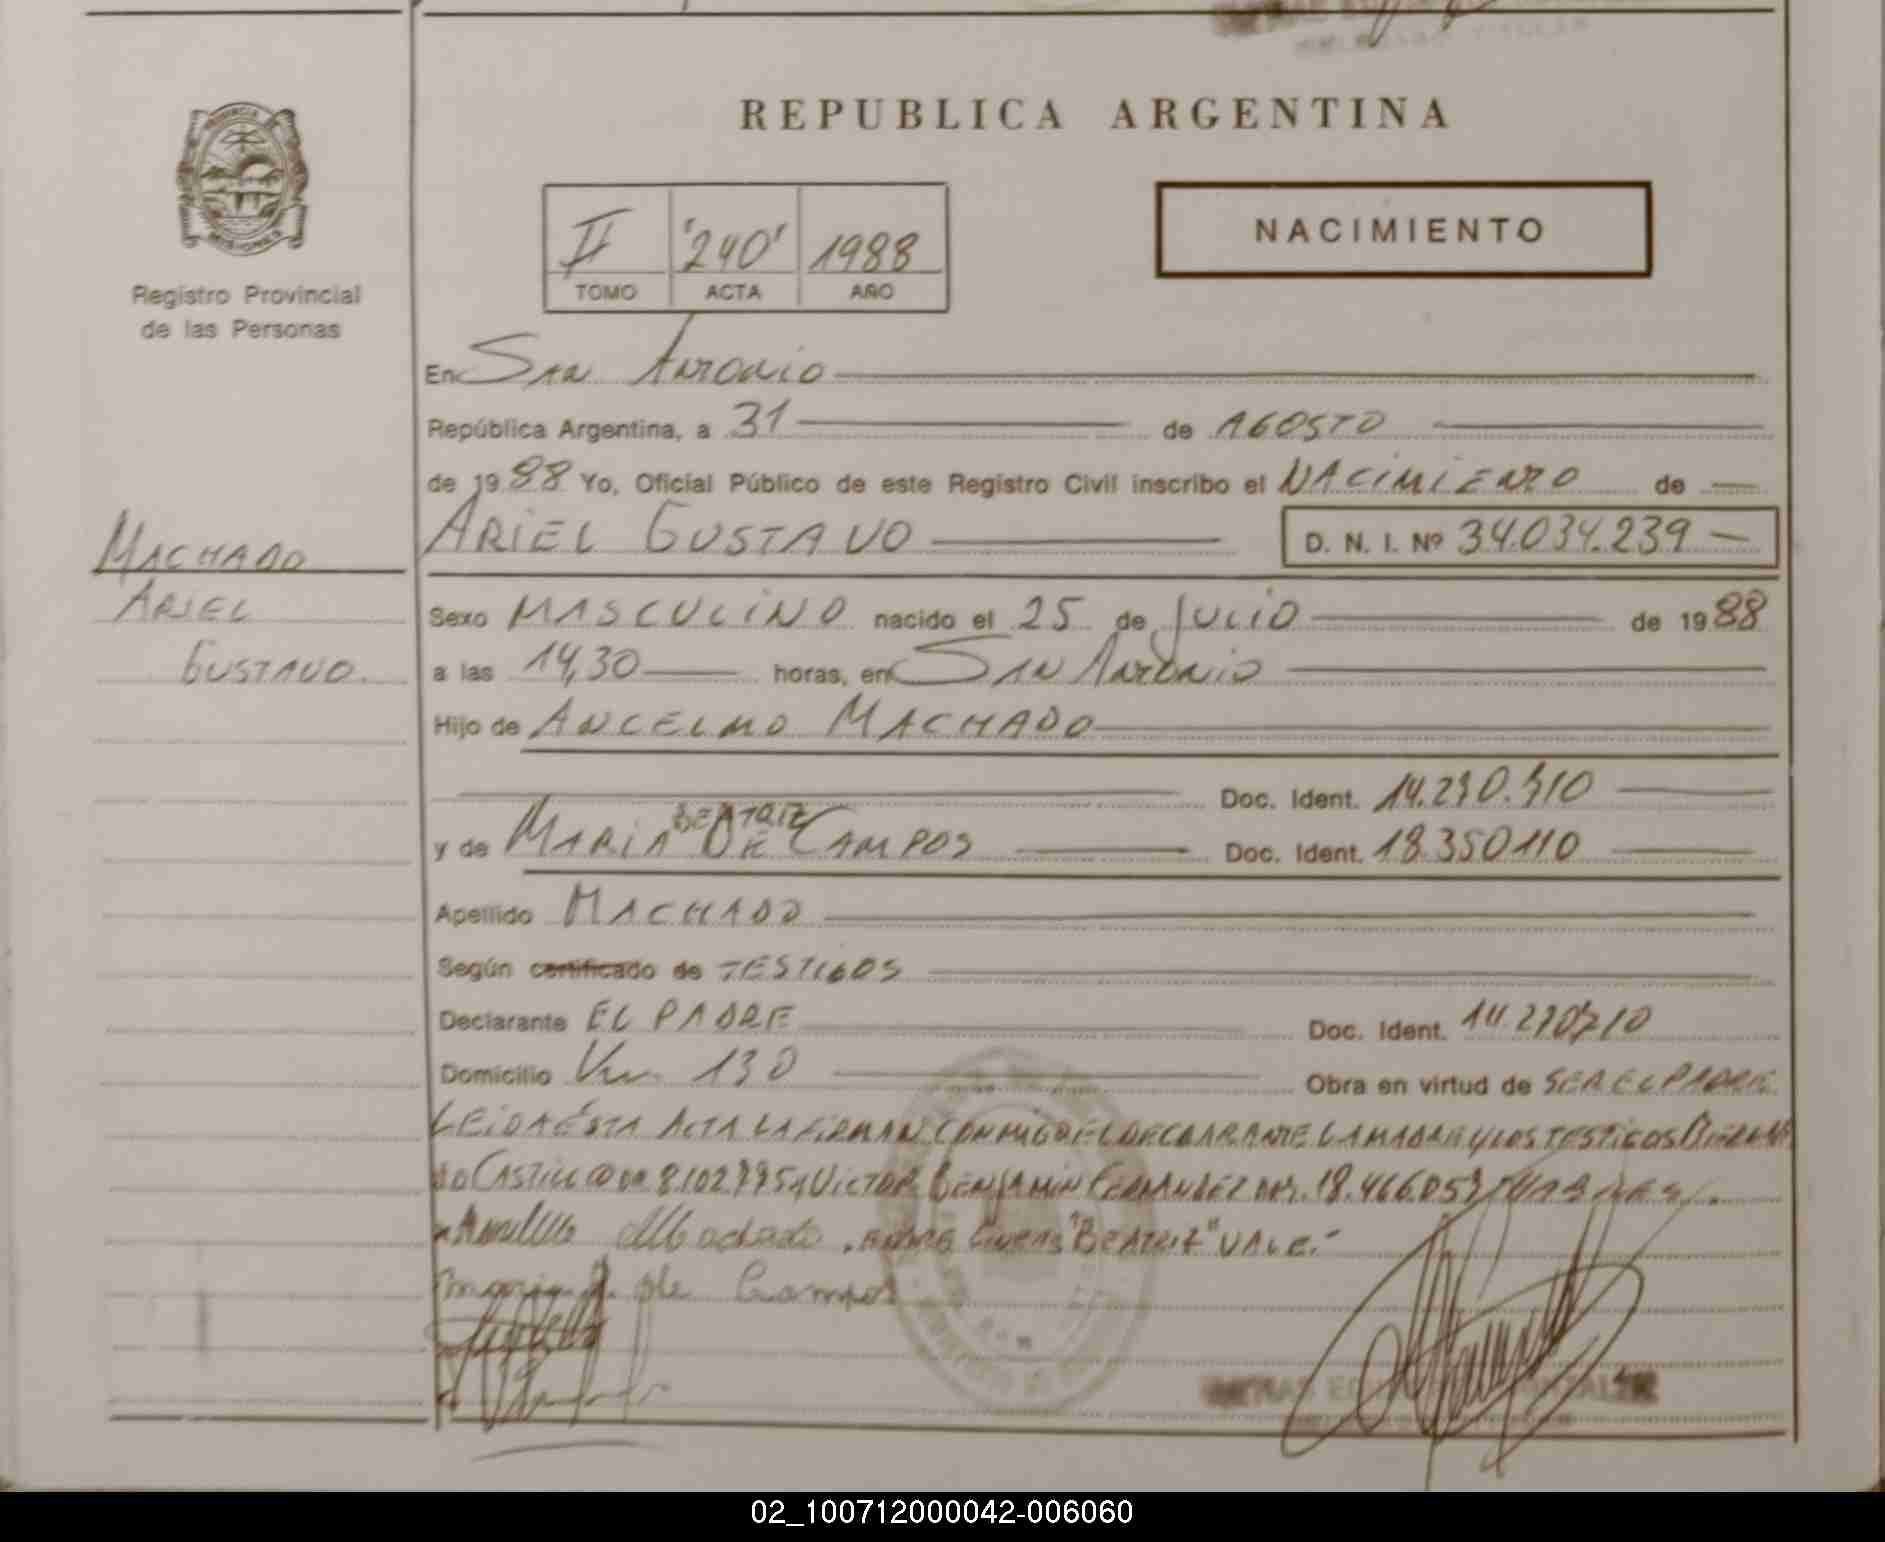 REPUBLICA ARGENTINA
NACIMIENTO
II '240' 1988
TOMO ACTA AÑO
Registro Provincial
de las Personas
En San Antonio
República Argentina, a 31 de AGOSTO
de 1988 Yo, Oficial Público de este Registro Civil inscribo el NACIMIENTO de
ARIEL GUSTAVO D. N. I. Nº 34.034.239
MACHADO
ARIEL
GUSTAVO.
Sexo MASCULINO nacido el 25 de JULIO de 1988
a las 14,30 horas, en SAN ANTONIO
Hijo de ANCELMO MACHADO
Doc. Ident. 14.290.910
BEATRIZ
y de MARIA DE CAMPOS Doc. Ident. 18.350110
Apellido MACHADO
Según certificado de TESTIGOS
Declarante EL PADRE Doc. Ident.
Domicilio Km 130 Obra en virtud de SER EL PADRE
LEIDA ÉSTA ACTA LA FIRMAN CONMIGO EL DECLARANTE LA MADRE Y LOS TESTIGOS
CASTILLO VICTOR BENJAMIN FERNANDEZ 18.466.053
Machado. ENTRE LINEAS "BEATRIZ" VALE.-
Maria de Campos
02_100712000042-006060